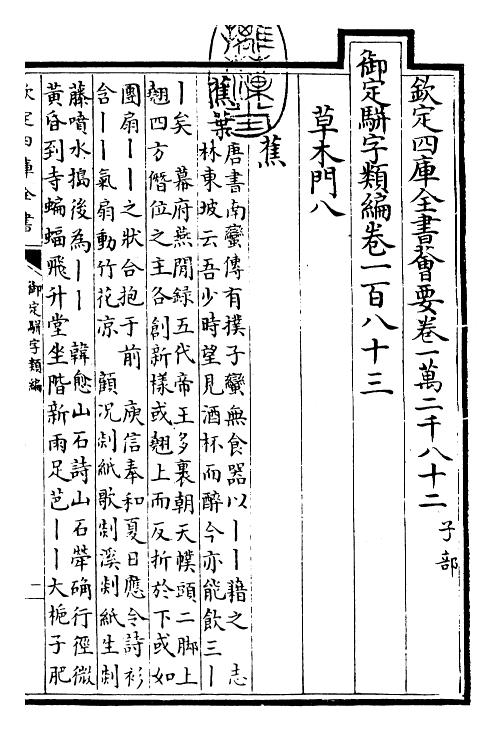 欽定四庫全書薈要卷一萬二千八十二 子部
御定駢字類編卷一百八十三
草木門八
蕉
蕉葉
唐書南蠻傳有撲子蠻無食器以丨丨藉之 志
林東坡云吾少時望見酒杯而醉今亦能飲三丨
丨矣 幕府燕閒錄五代帝王多裹朝天幞頭二脚上
翹四方僭位之主各創新樣或翹上而反折於下或如
團扇丨丨之狀合抱于前 庾信奉和夏日應令詩衫
含丨丨氣扇動竹花凉 顧况剡紙歌剡溪剡紙生剡
藤噴水搗後為丨丨 韓愈山石詩山石犖确行徑微
黃昏到寺蝙蝠飛升堂坐階新雨足芭丨丨大梔子肥
欽定四庫全書
御定駢字類編